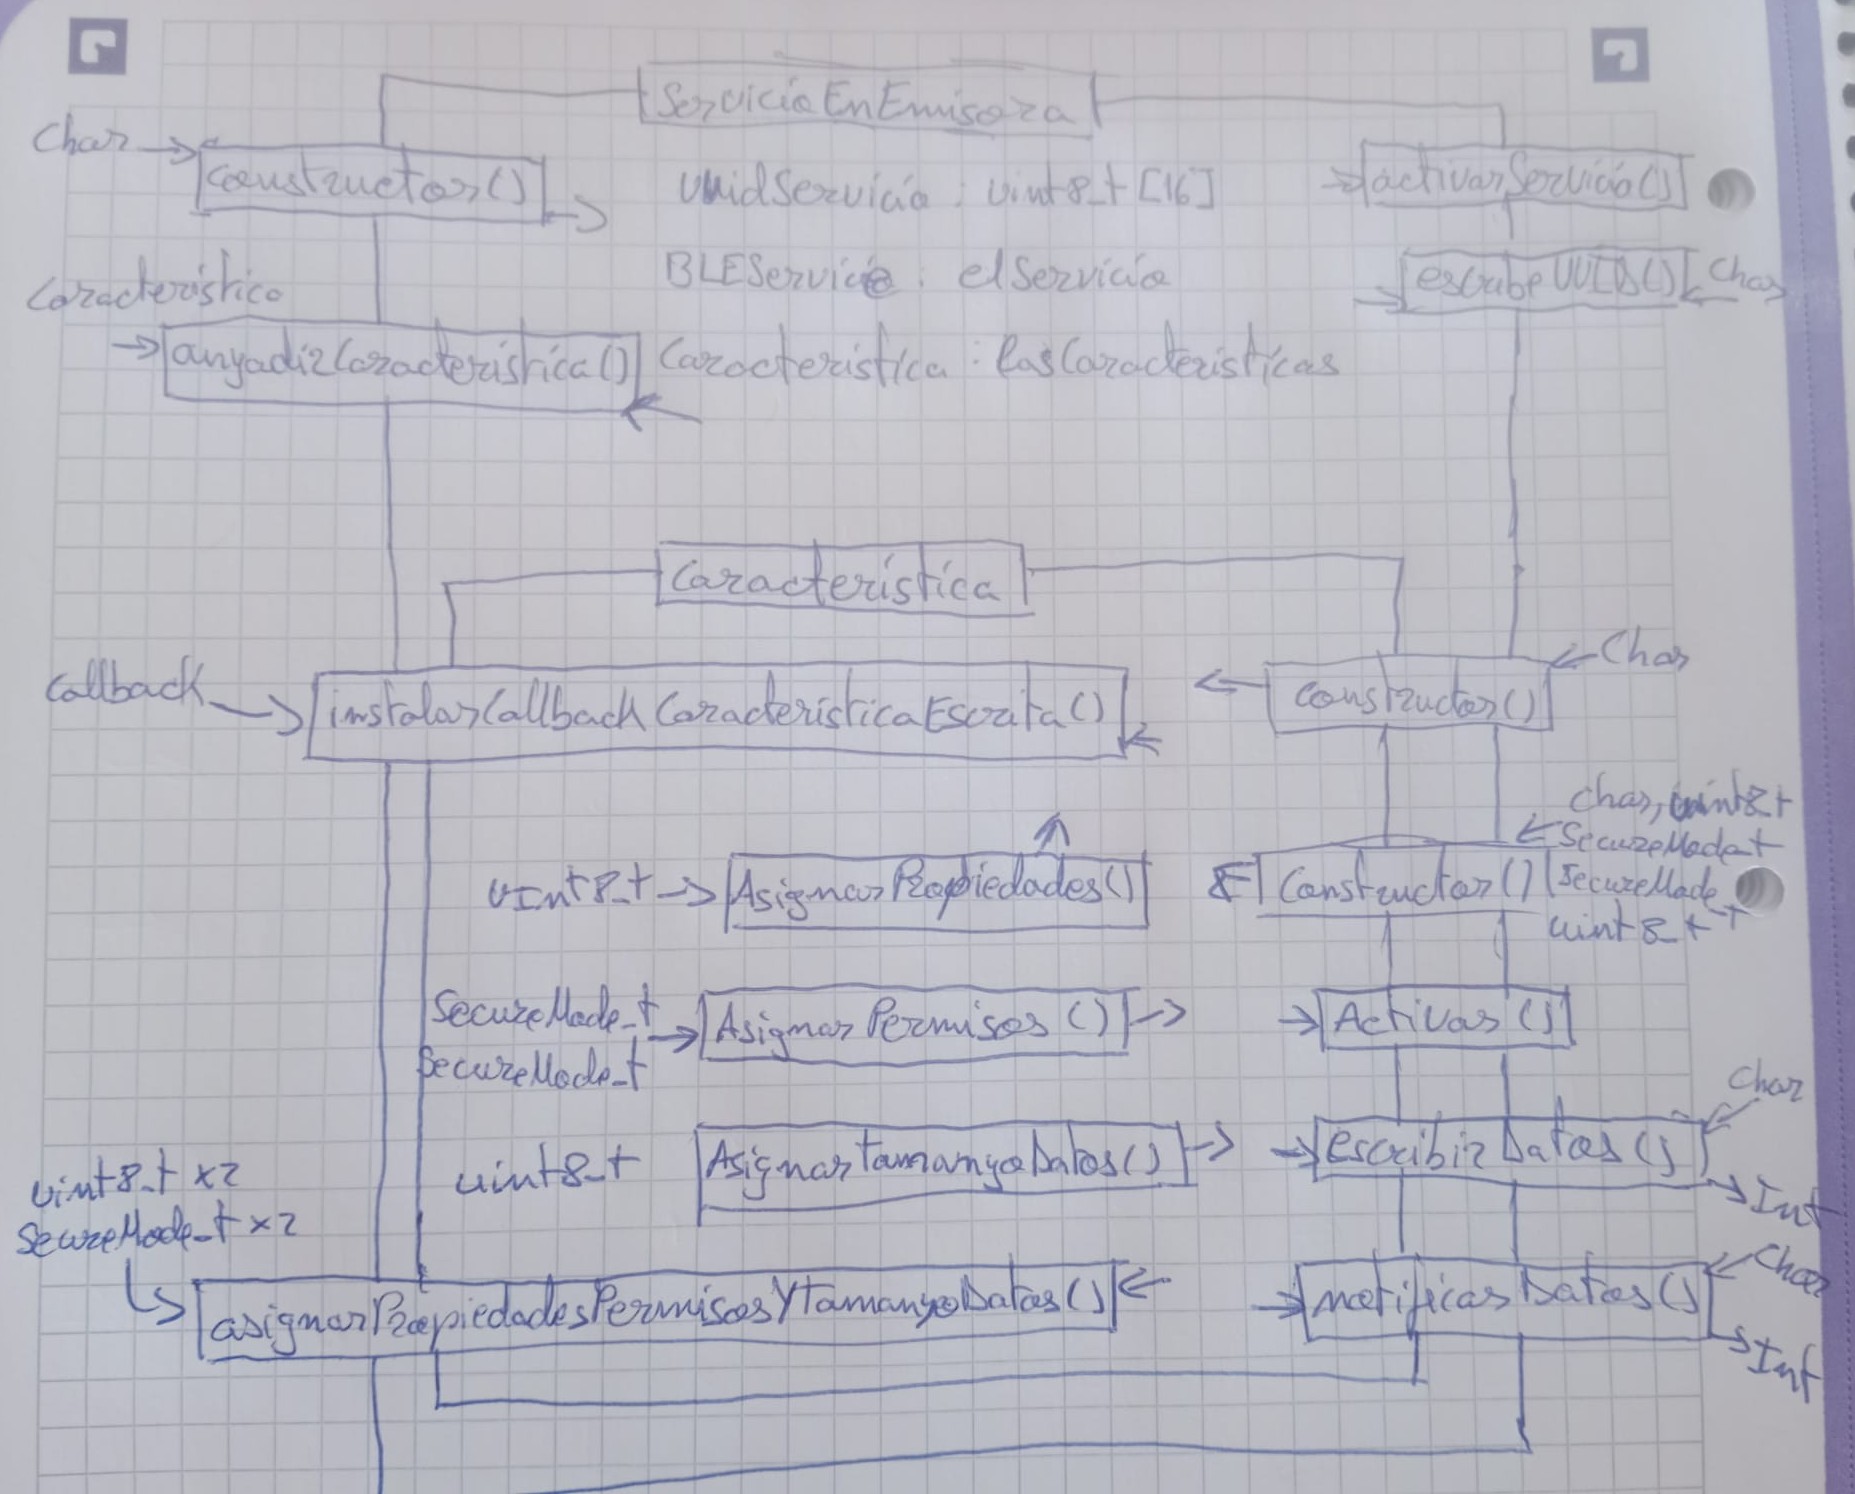 ServicioEnEmisora
Char
constructor()
uuidServicio : uint8_t [16]
activarServicio()
BLEService : elServicio
escribeUUID() Char
Característica
anyadirCaracterística() Característica : lasCaracterísticas
Característica
Callback
instalarCallbackCaracterísticaEscrita()
constructor()
Char
Char, uint8_t
SecureMode_t
uint8_t AsignarPropiedades()
Constructor() SecureMode_t
uint8_t
SecureMode_t
SecureMode_t
AsignarPermisos ()
Activar ()
Char
uint8_t AsignarTamanyoDatos()
escribirDatos ()
Int
uint8_t x2
SecureMode_t x2
asignarPropiedadesPermisosYTamanyoDatos()
notificarDatos()
Char
Int